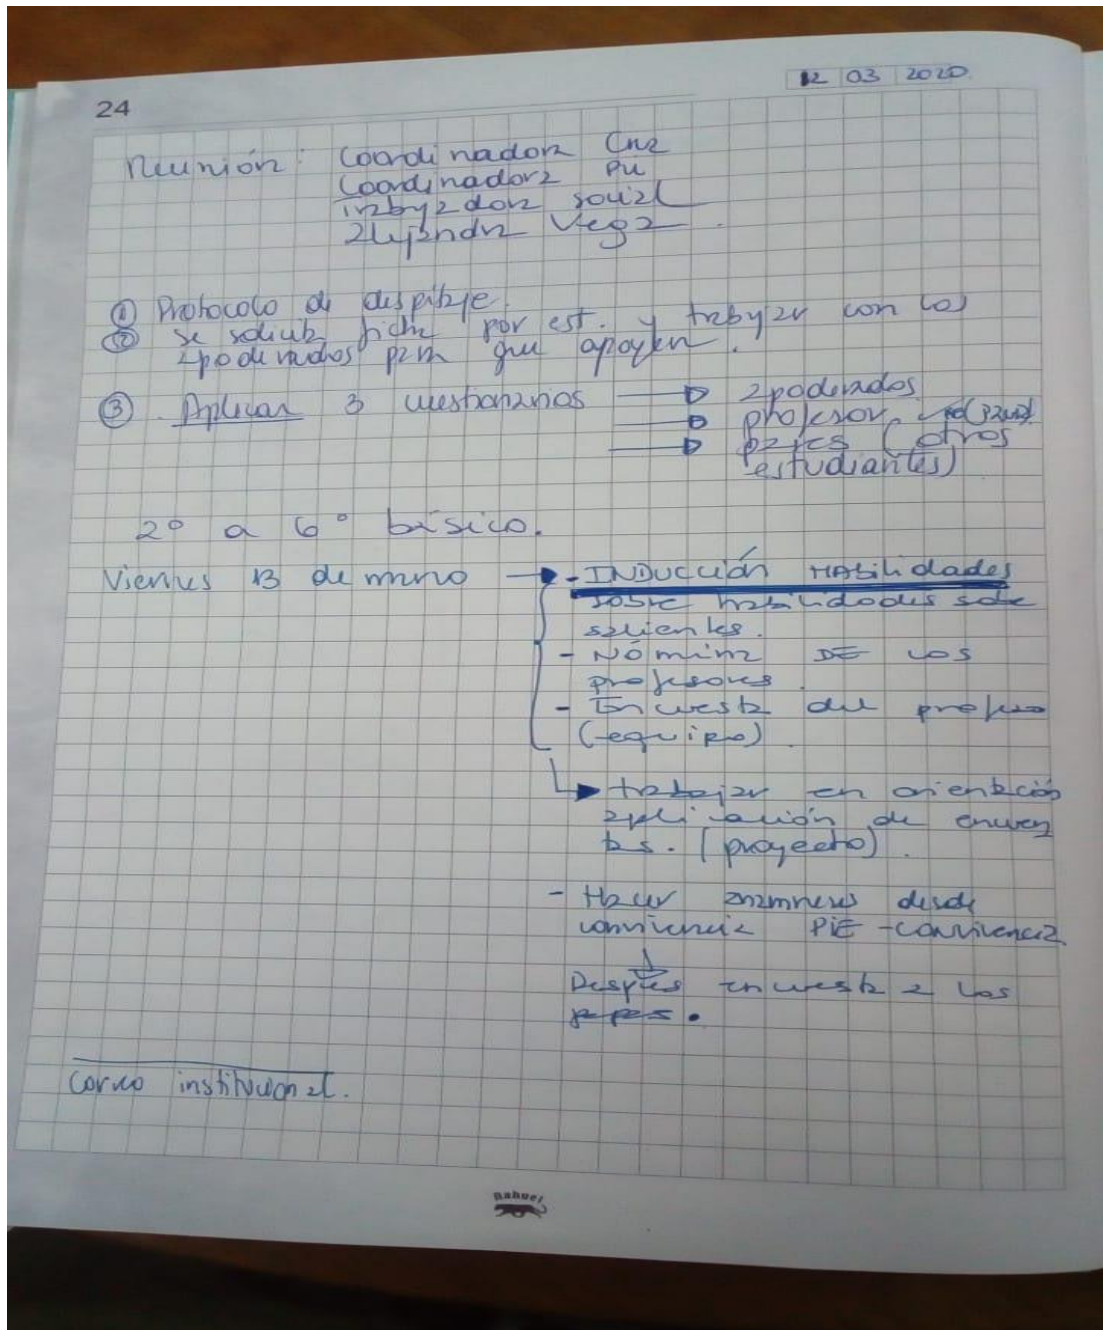 24
12 03 2020
Reunión: Coordinadora
Coordinadora
Trabajadora social
Alejandra Vega.
① Protocolo de despitaje.
② se solicita ficha por est. y trabajar con los
apoderados para que apoyen.
③ Aplicar 3 cuestionarios → apoderados
→ profesor
→ pares (otros
estudiantes)
2° a 6° básico.
Viernes 13 de marzo → - INDUCCIÓN HABILIDADES
sobre habilidades sobre
salientes.
- Nómina DE los
profesores.
- Encuesta del profeso
(equipo).
→ trabajar en orientación
aplicación de encues
tas. (proyecto).
- Hacer anamnesis desde
convivencia PIE - convivencia
Después encuesta a los
Correo institucional.
Rahuel